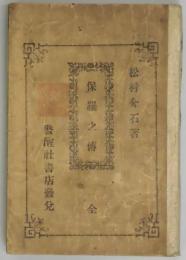 松村介石著
保羅之傳 全
警醒社書店發兌